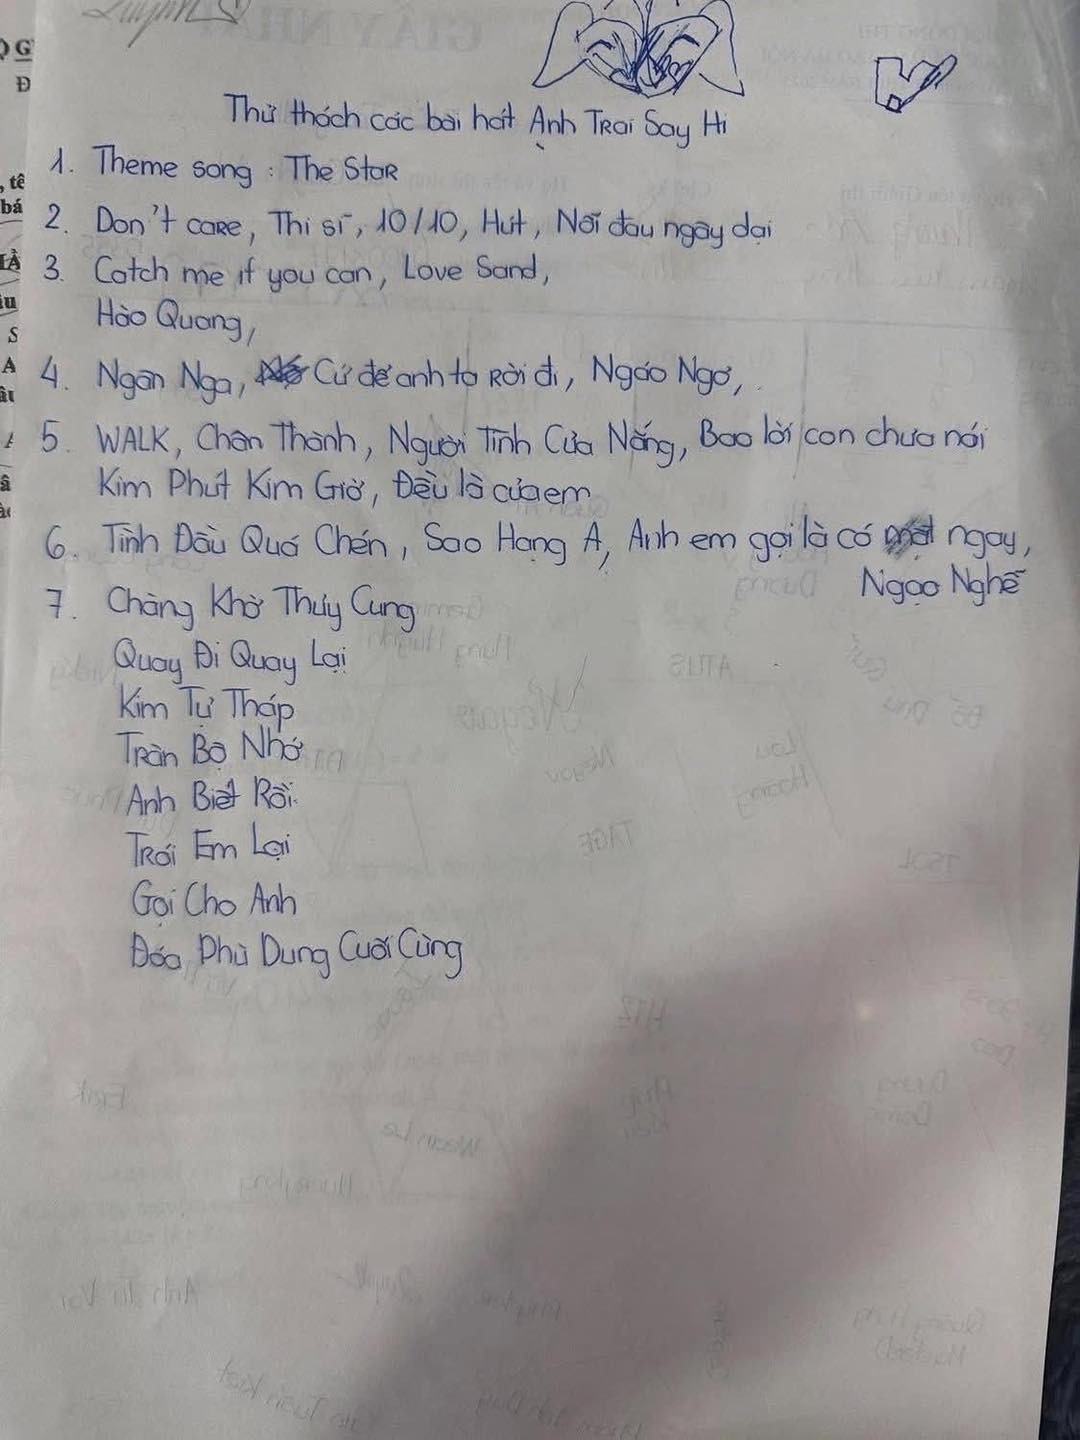 Quỳnh
GIẤY NHÁ
Thử thách các bài hát Anh Trai Say Hi
1. Theme song : The Star
2. Don't care, Thi sĩ, 10/10, Hút, Nỗi đau ngây dại
3. Catch me if you can, Love Sand,
Hào Quang,
4. Ngân Nga, Cứ để anh ta rời đi, Ngáo Ngơ,
5. WALK, Chân Thành, Người Tình Của Nắng, Bao lời con chưa nói
Kim Phút Kim Giờ, Đều là của em
6. Tình Đầu Quá Chén, Sao Hạng A, Anh em gọi là có mặt ngay,
Ngạo Nghễ
7. Chàng Khờ Thủy Cung
Quay Đi Quay Lại
Kim Tự Tháp
Tràn Bộ Nhớ
Anh Biết Rồi
Trói Em Lại
Gọi Cho Anh
Đóa Phù Dung Cuối Cùng